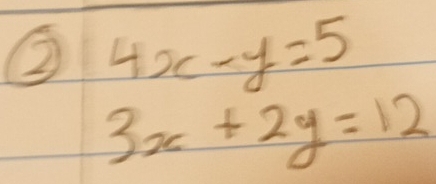 ② 4x - y = 5
3x + 2y = 12